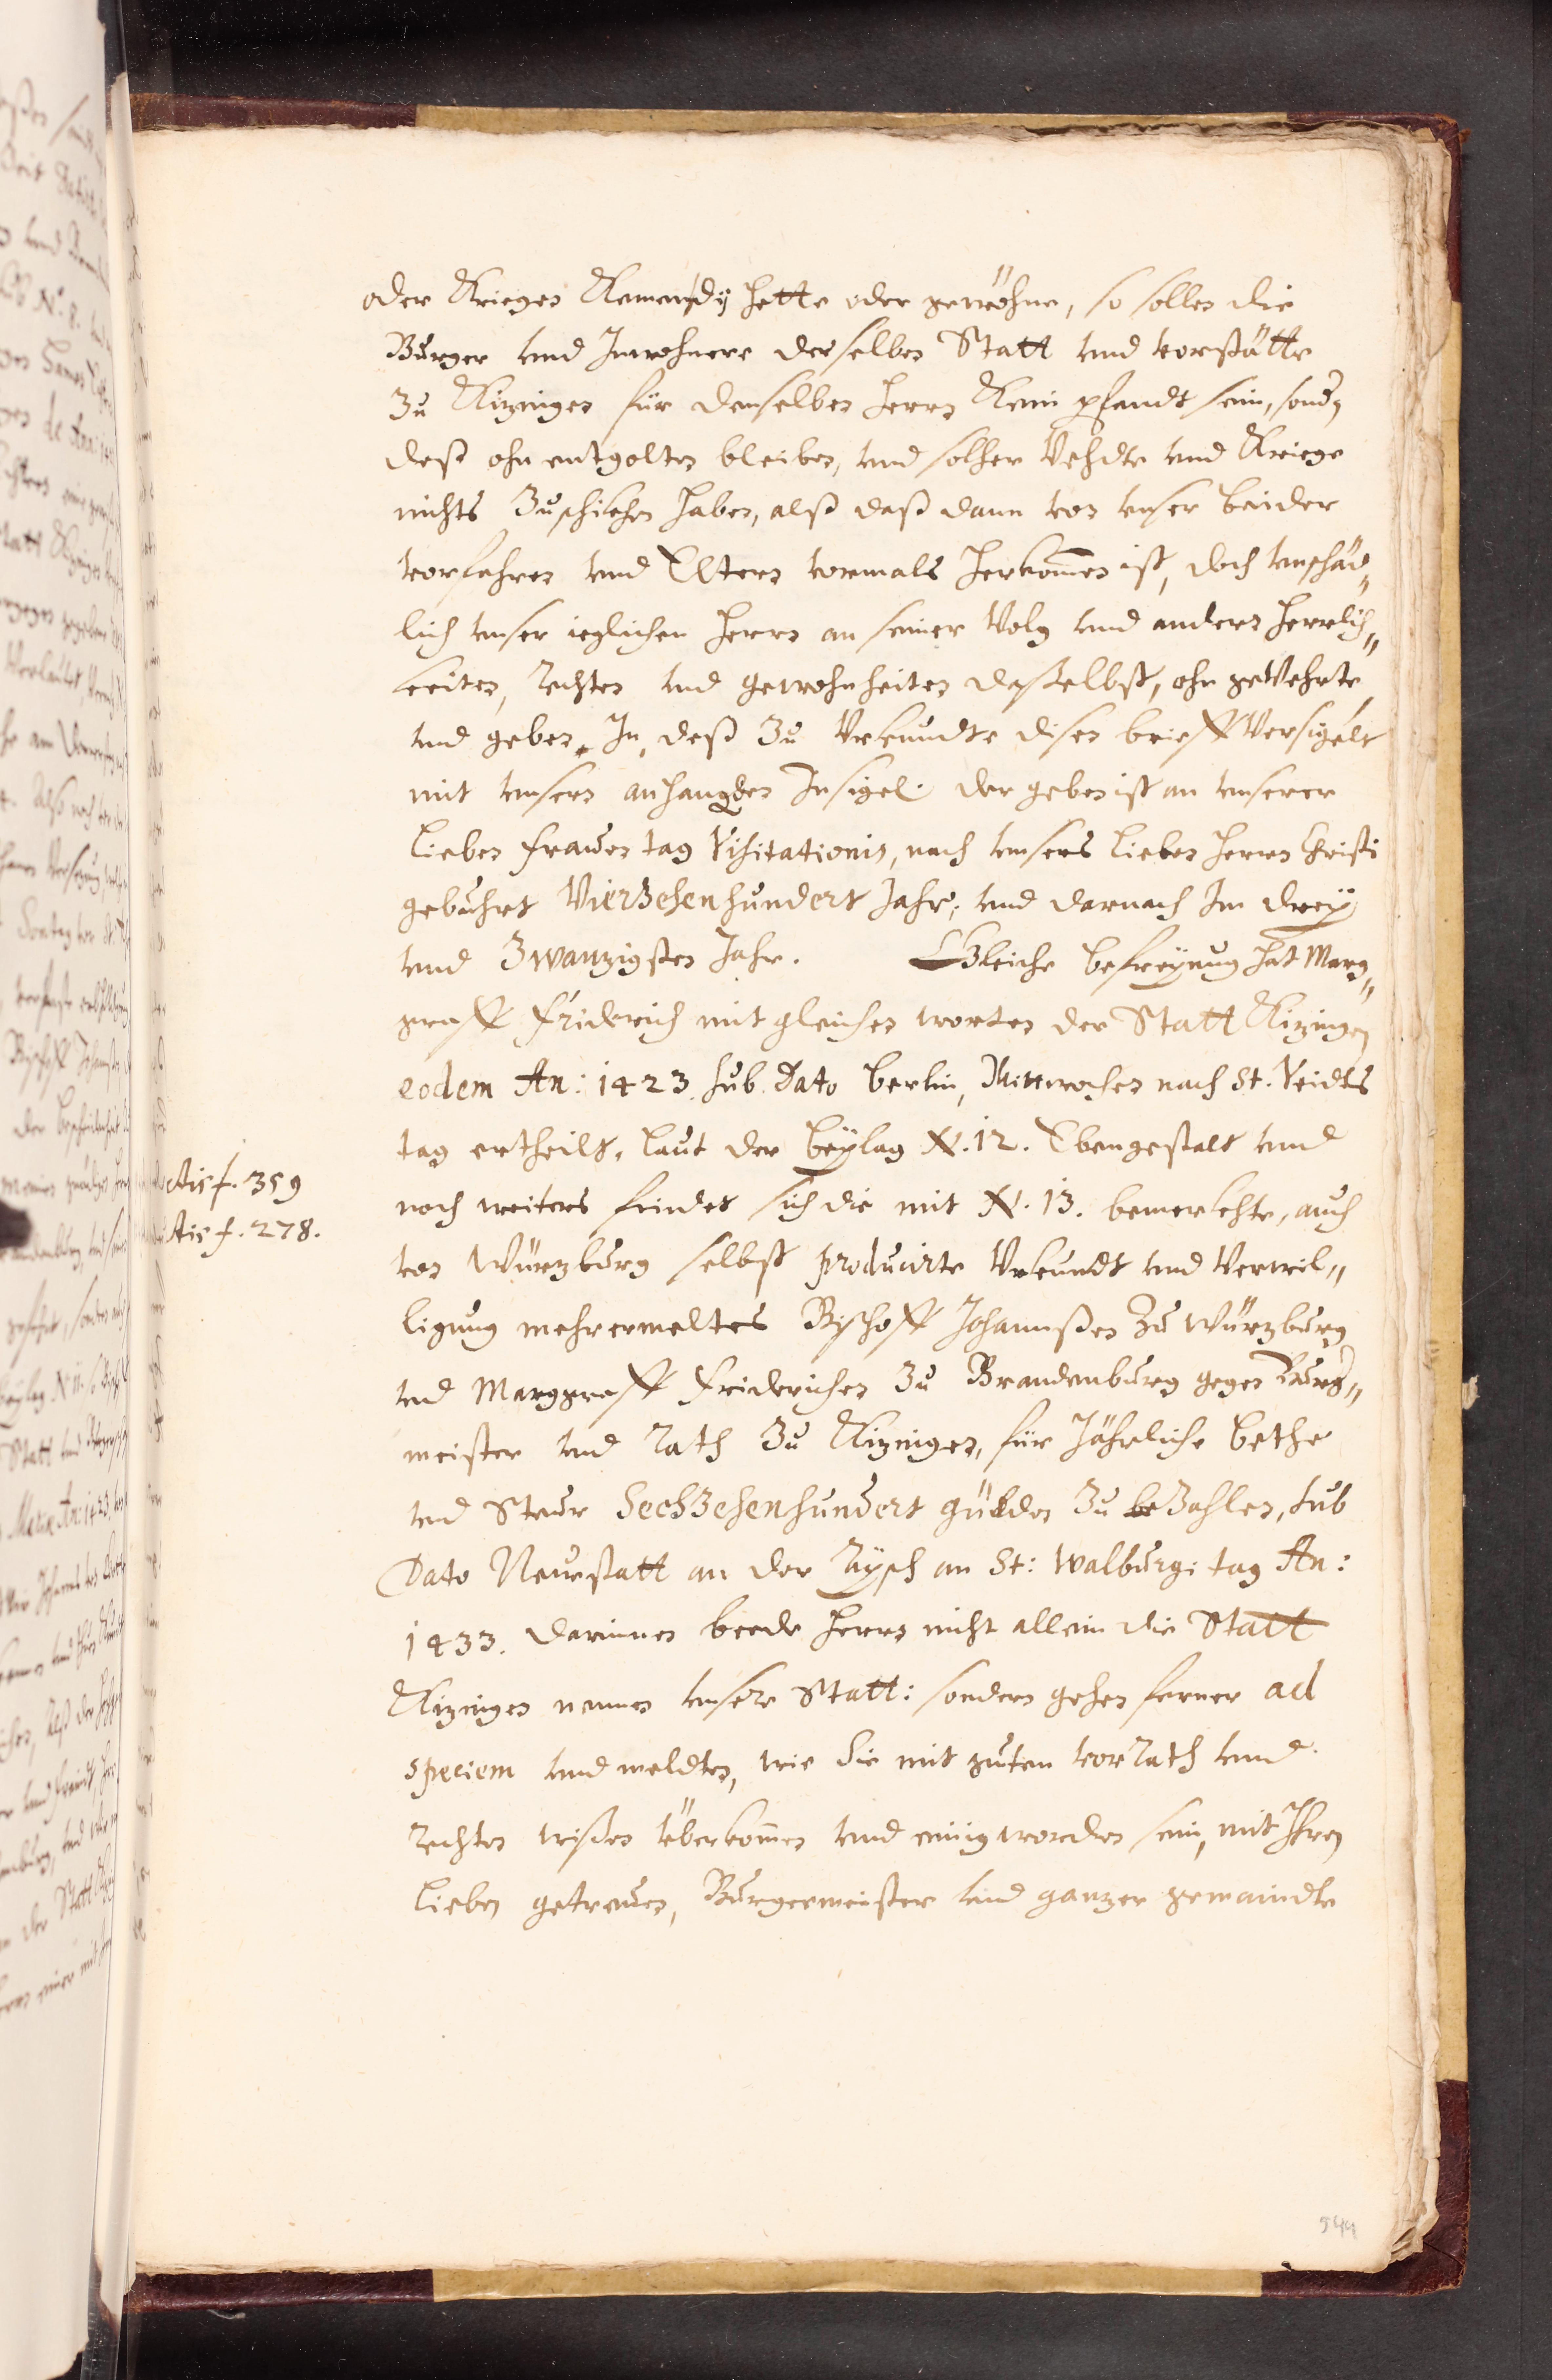 oder Krieges Kemendij hette oder gewöhne, so sollen die
Burger vnd Inwohnere derselben Statt vnd vorstätte
Zu Kitzingen für denselben Herrn Kein pfandt sein, sondern
deß ohn entgolten bleiben, vnd solher Vehdte vnd Kriege
nichts Zuschikhen haben, alß daß dann von vnser beider
vorfahren vnd Eltern vormals Herkommen ist, doch vnschäd„
lich vnser ieglichen Herrn an seiner Volg vnd andern Herrlich„
keiten, Rechten vnd gewohnheiten daselbst, ohn geVehrte,
vnd geben In, deß Zu Vrkundte disen brieff Versigelt
mit vnsern anhangden Insigel. der geben ist an vnserer
Lieben frawen tag Visitationis, nach vnsers Lieben Herrn Christi
gebuhrt VierZehenhundert Jahr, vnd darnach Im dreÿ
vnd Zwanzigsten Jahr. Gleiche befreÿung hat Marg„
graff Friderich mit gleichen worten der Statt Kitzingen
eodem An: 1423. sub Dato Berlin, Mittwochen nach St. Veidts
tag ertheilt, laut der Beÿlag N. 12. Ebengestalt vnd
noch weiters findet sich die mit N. 13. bemerkhte, auch
von Würzburg selbst producirte Vrkundt vnd Verwil„
ligung mehrermeltes Bischoff Johannßen Zu Würzburg
vnd Marggraff Friderichen Zu Brandenburg gegen Burger„
meister vnd Rath Zu Kitzingen, für Jährliche bethe
vnd Steur SechZehenhundert gülden Zu beZahlen, sub
Dato Neustatt an der Aÿsch an St: Walburgi tag An:
1433. darinnen beede Herrn nicht allein die Statt
Kitzingen nennen vnsere Statt: sondern gehen ferner ad
speciem vnd meldten, wie Sie mit guten vorRath vnnd
Rechten wißen überkommen vnd einig worden sein, mit Ihren
Lieben getrewen, Burgermeister vnd ganzer gemaindte
ctis f. 359
ctis f. 278.
544